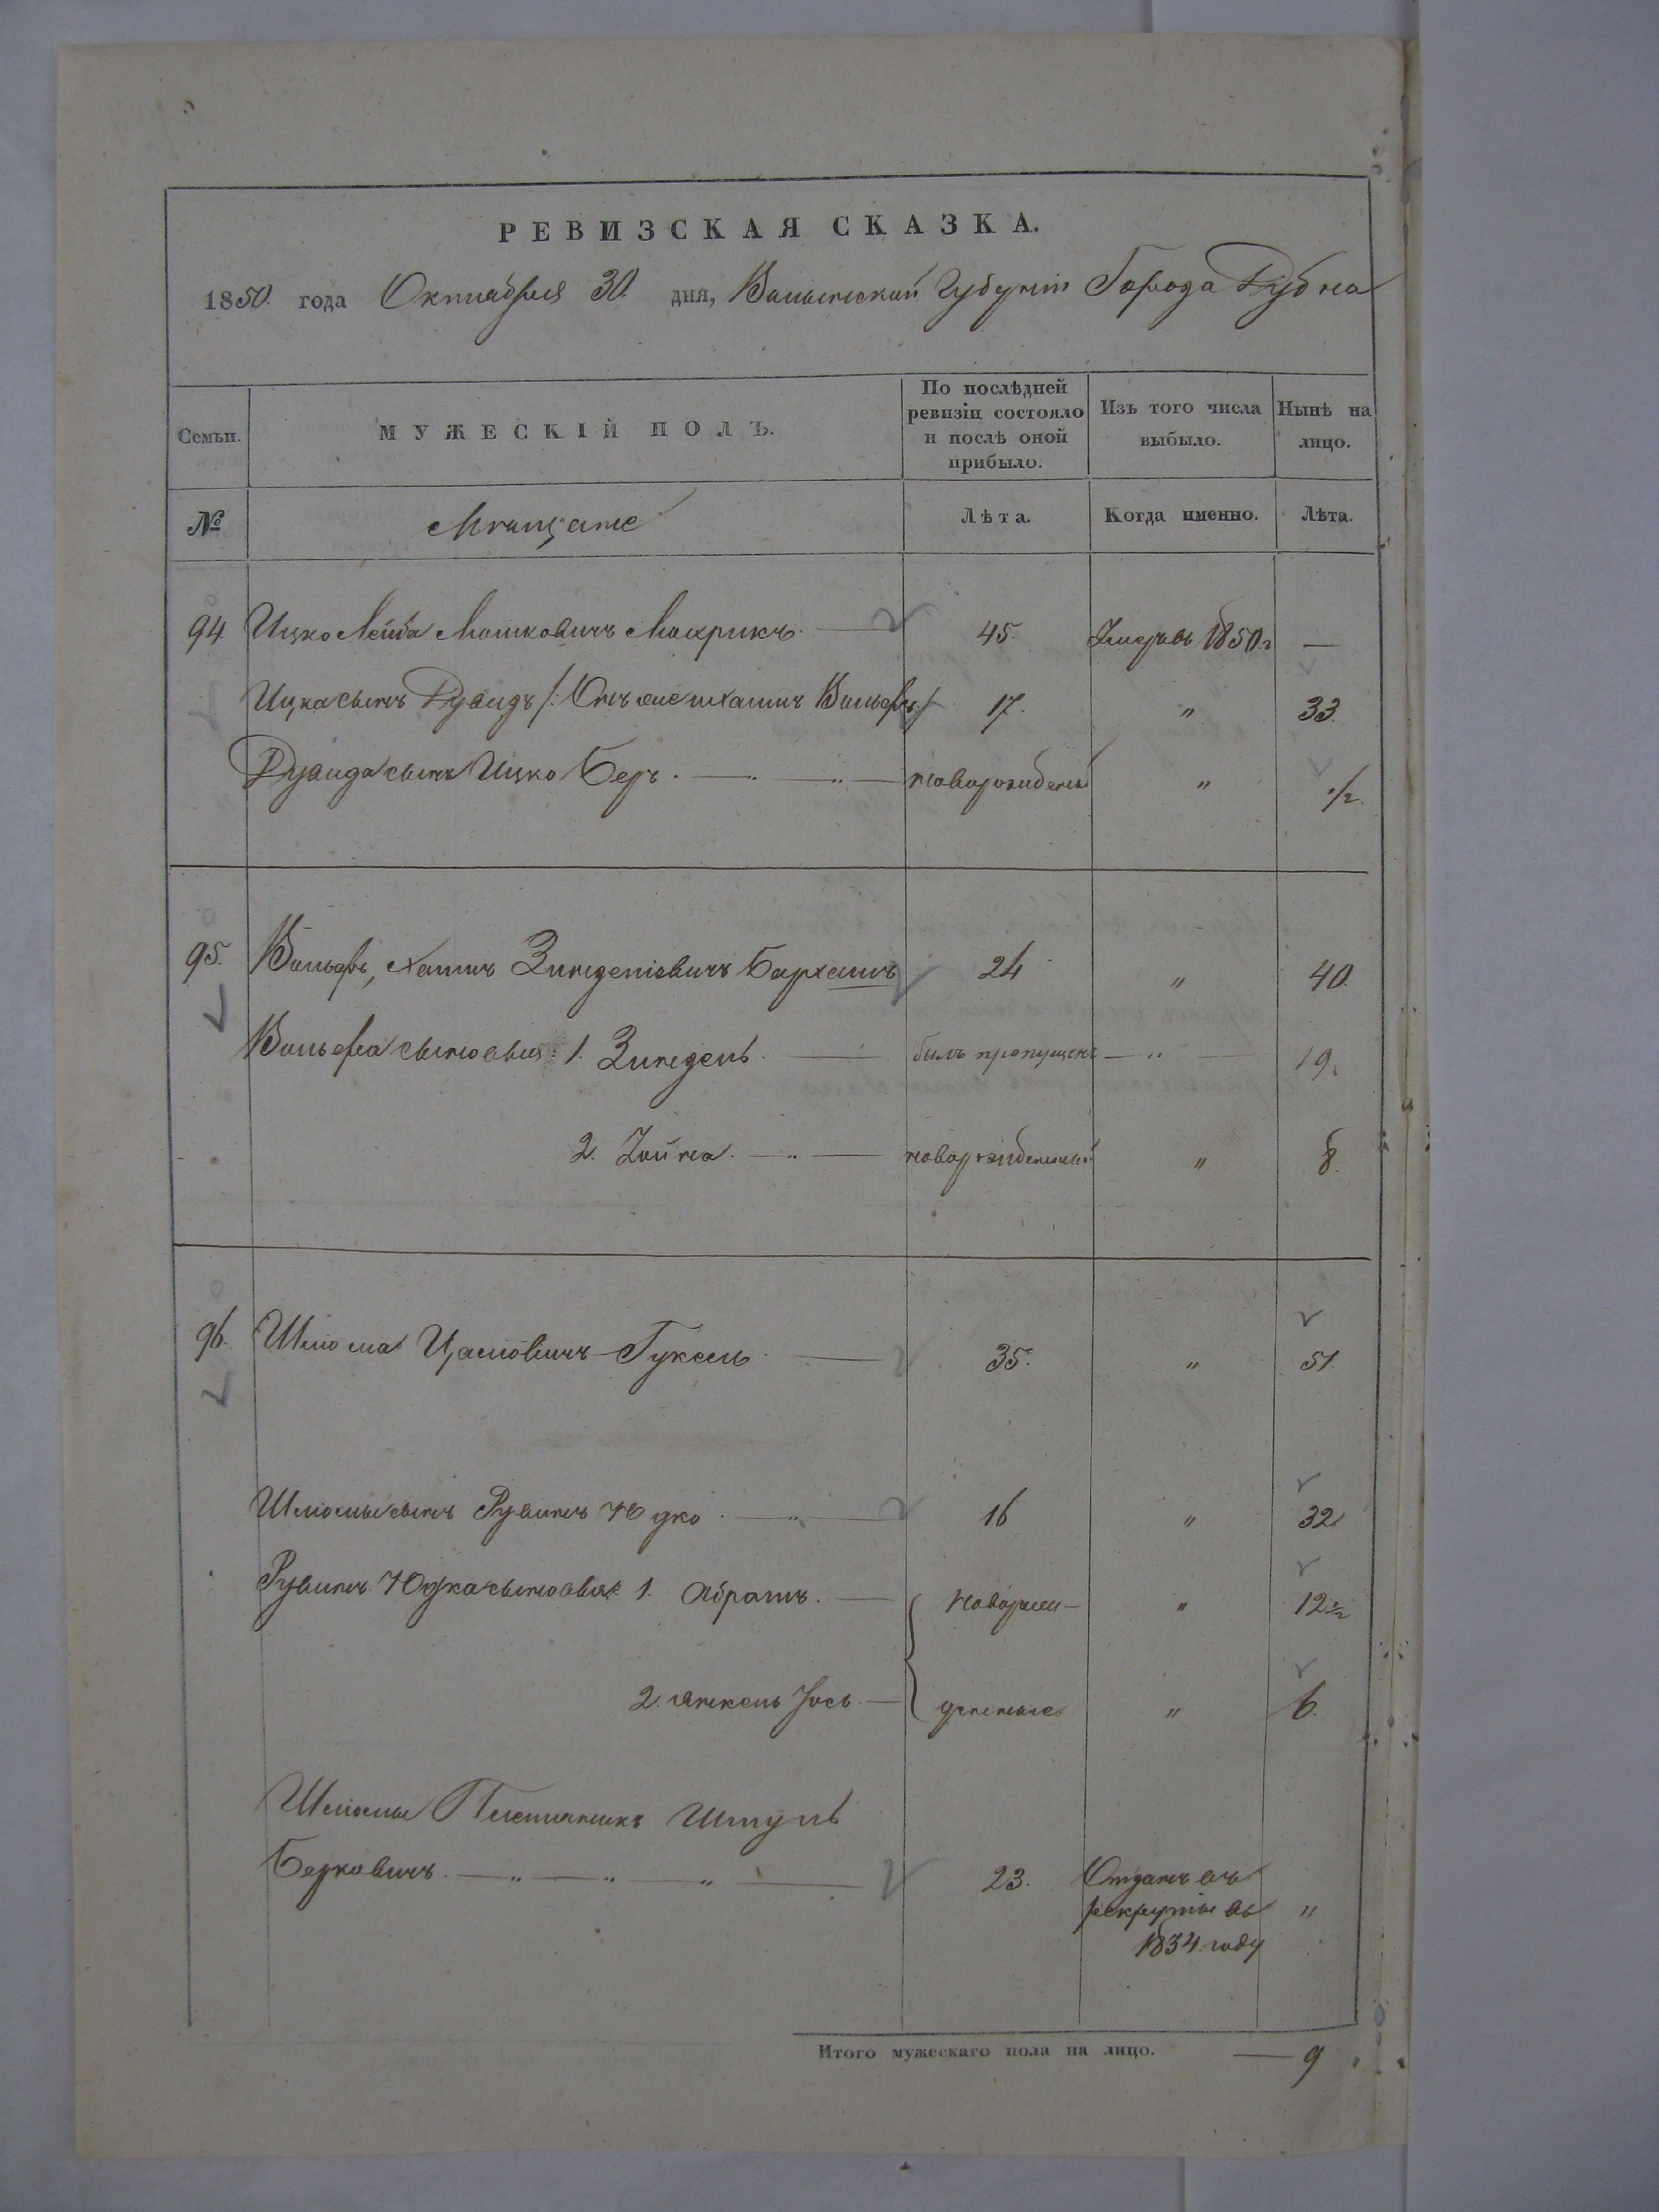 РЕВИЗСКАЯ СКАЗКА.
1850. года Октября 30. дня, Волынской Губерніи Города Дубна
Семьи. МУЖЕСКІЙ ПОЛЪ. По послѣдней ревизіи состояло и послѣ оной прибыло. Изъ того числа выбыло. Нынѣ на лицо.
№ Мѣщане Лѣта. Когда именно. Лѣта.
94 Ицко Лейба Мошковичъ 45. Умеръ въ 1850 г —
Ицка сынъ Дувидъ 17. " 33.
Дувида сынъ Ицко Беръ. — " — " — новорожденый " 1/2.
95. Вольфъ, Хаимъ Зинделіовичъ Бархашъ 24 " 40.
Вольфа сыновья: 1. Зиндель. — былъ пропущенъ — " — 19.
2. — " — новорожденный " 8.
96. Шліома Гуксель — 35. " 51.
Шліомы сынъ Рувинъ Юдко. — " — 16 " 32.
Рувинъ Юдка сыновья: 1. Абрамъ. — новорож- " 12 1/2
2. Янкель Іось — денные " 6.
Шліомы Племянникъ
Берковичъ. — " — " — " — 23. Отданъ въ
рекруты въ "
1834 году
Итого мужескаго пола на лицо. — 9